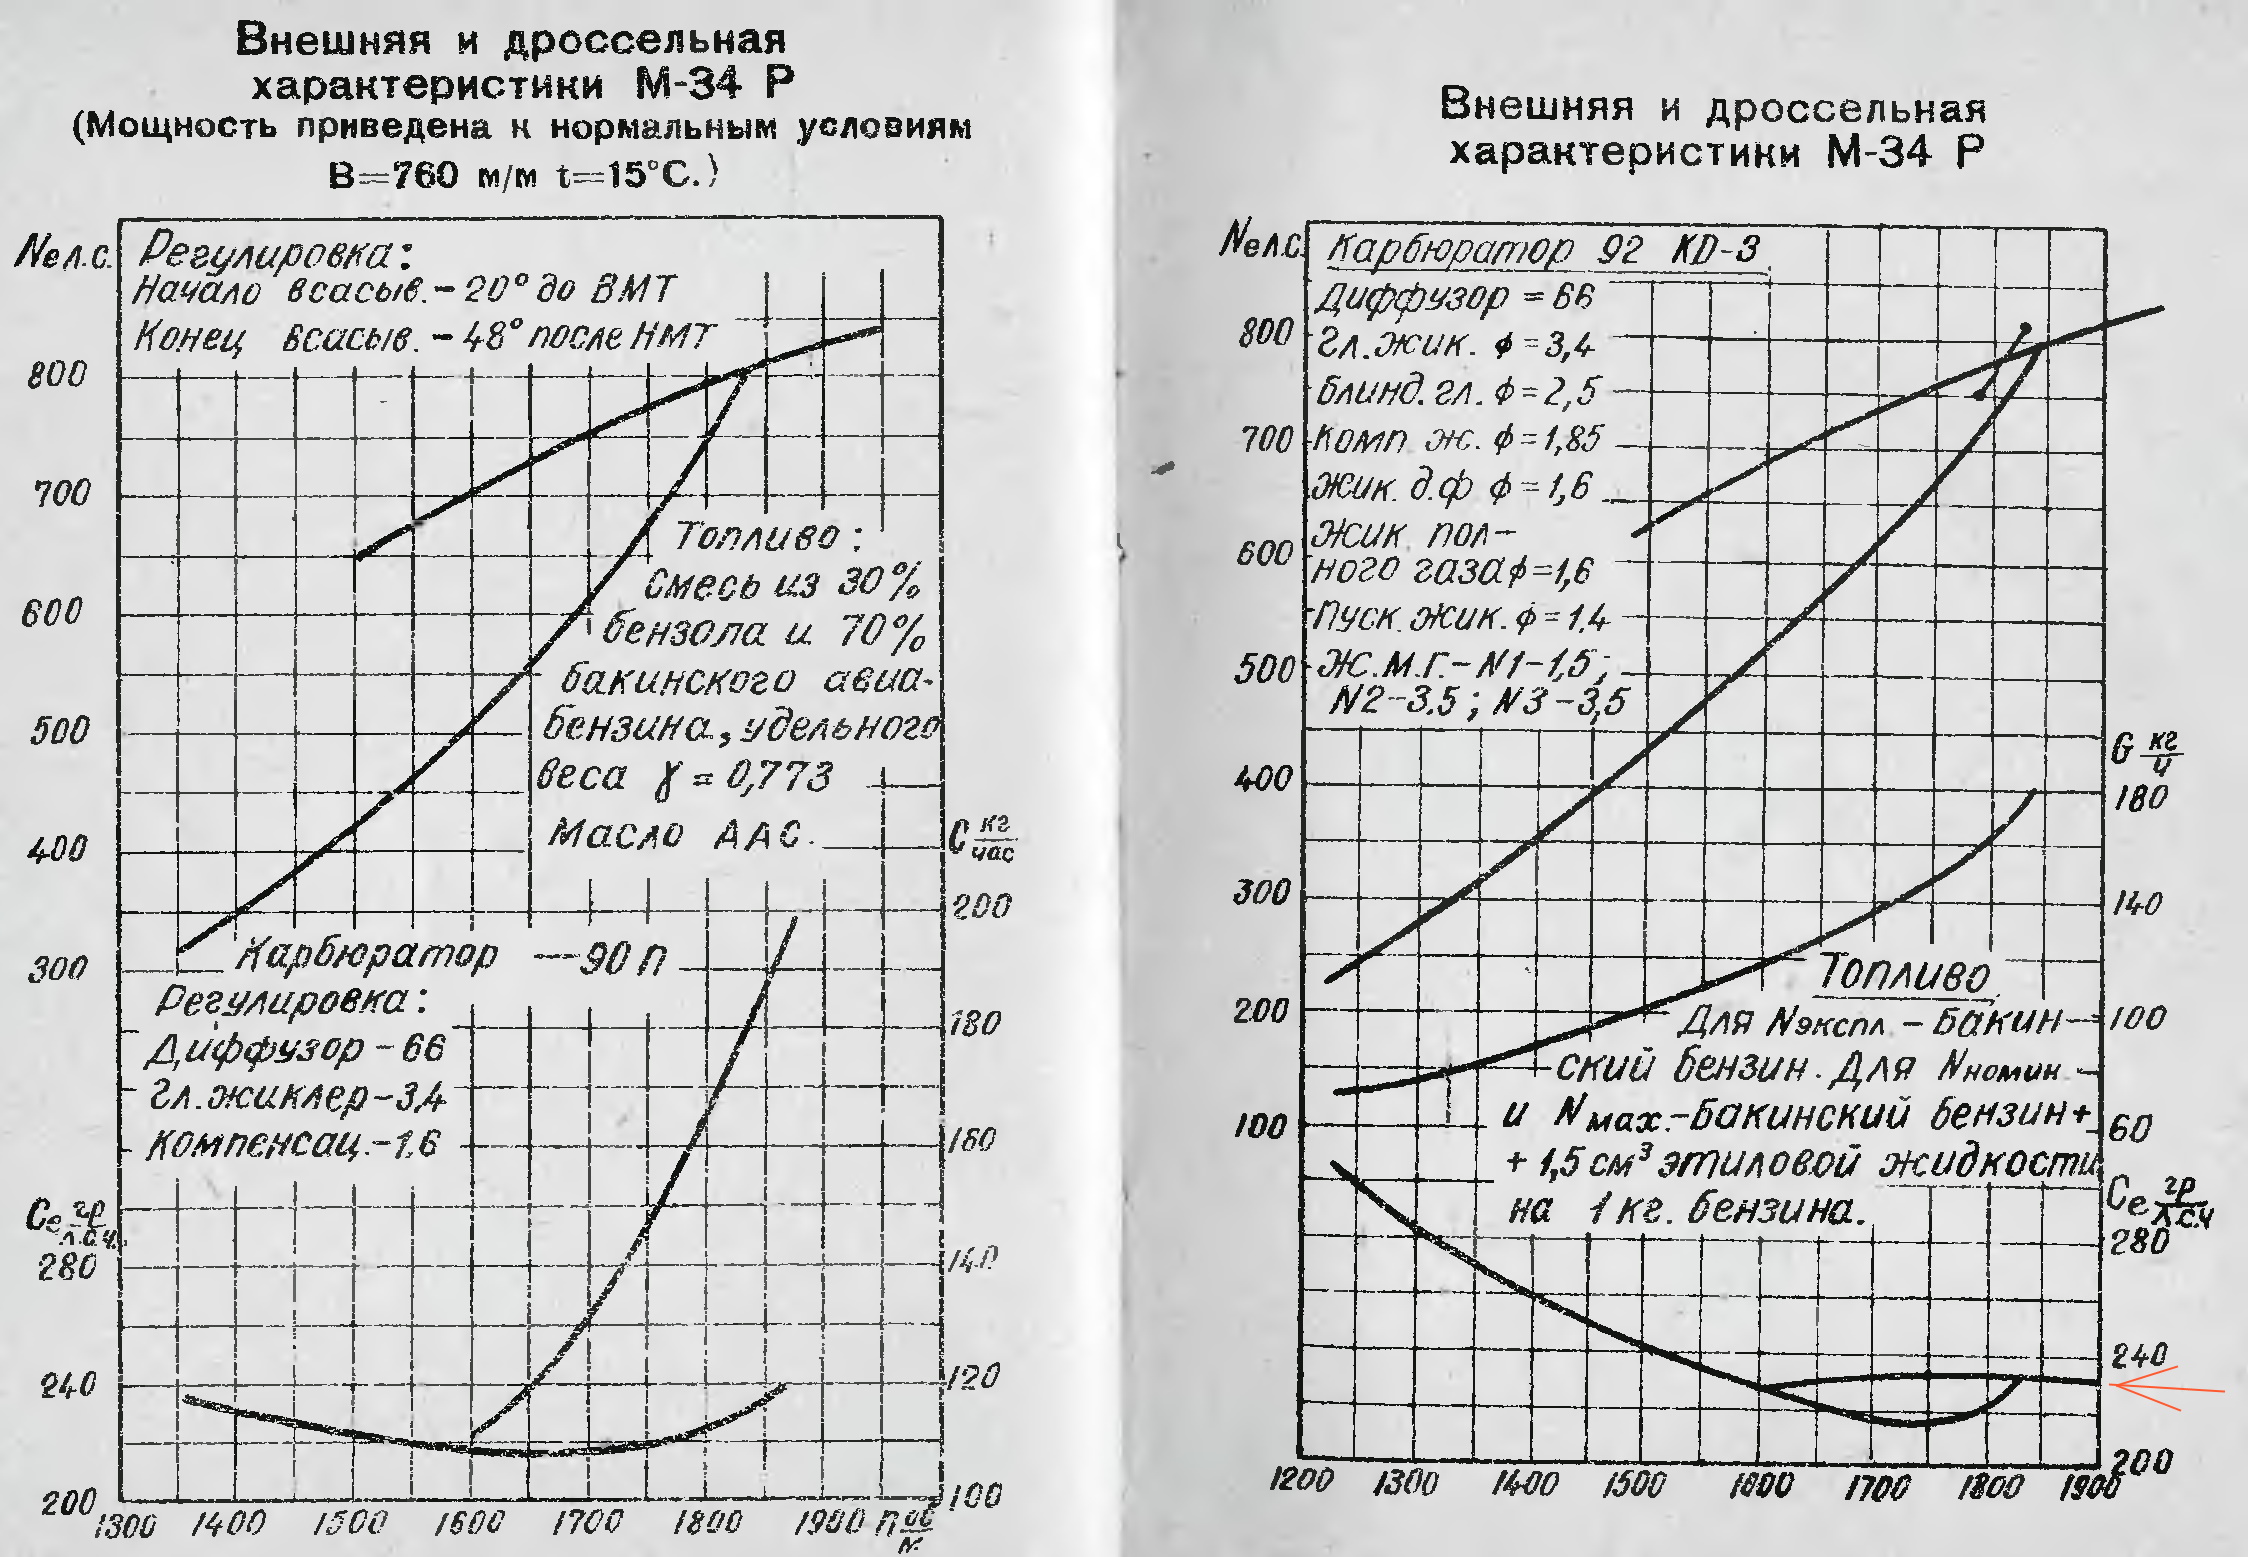 Внешняя и дроссельная
характеристики М-34 Р
(Мощность приведена к нормальным условиям
В=760 м/м t=15°С.)
Nе л.с.
Регулировка:
Начало всасыв.-20° до ВМТ
Конец всасыв.-48° после НМТ
800
700
600
500
400
300
Топливо:
Смесь из 30%
бензола и 70%
бакинского авиа-
бензина, удельного
веса γ = 0,773
Масло ААС.
С кг/час
200
180
160
140
120
100
Карбюратор — 90 П
Регулировка:
Диффузор - 66
Гл. жиклер-3,4
Компенсац.-1.6
Се гр/л.с.ч.
280
240
200
1300 1400 1500 1600 1700 1800 1900 n об/м
Внешняя и дроссельная
характеристики М-34 Р
Nе л.с.
Карбюратор 92 КД-3
Диффузор = 66
Гл. жик. ф=3,4
блинд. гл. ф=2,5
Комп ж. ф=1,85
Жик. д.ф ф=1,6
Жик пол-
ного газа ф=1,6
Пуск. жик. ф=1.4
Ж.М.Г.-N1-1,5;
N2-3.5; N3-3,5
800
700
600
500
400
300
200
100
G кг/ч
180
140
100
60
Топливо
Для Nэкспл. - Бакин-
ский бензин. Для Nномин -
и Nмах.-бакинский бензин+
+ 1,5 см³ этиловой жидкости
на 1 кг. бензина.
Се гр/л.с.ч
280
240
200
1200 1300 1400 1500 1600 1700 1800 1900